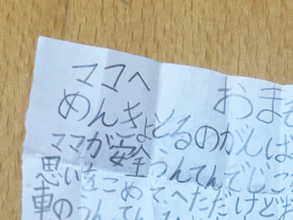 ママへ
おま
めんきょとるのがんば
ママが安全うんてんでじこ
思いをこめて、へただけど
車の